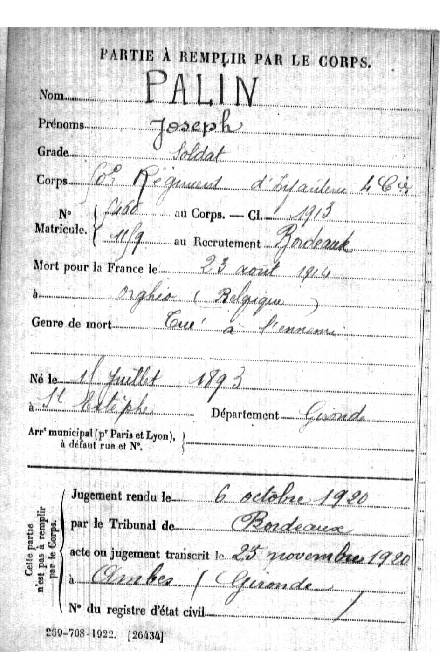 PARTIE À REMPLIR PAR LE CORPS.
Nom PALIN
Prénoms Joseph
Grade Soldat
Corps Régiment d'Infanterie 4 Cie
N° au Corps. — Cl. 1913
Matricule. au Recrutement Bordeaux
Mort pour la France le 23 août 1914
à Orghéo (Belgique)
Genre de mort Tué à l'ennemi
Né le Juillet 1893
à St Estèphe Département Gironde
Arrt municipal (pr Paris et Lyon),
à défaut rue et N°.
Cette partie
n'est pas à remplir
par le Corps.
Jugement rendu le 6 octobre 1920
par le Tribunal de Bordeaux
acte ou jugement transcrit le 25 novembre 1920
à Ambès (Gironde
N° du registre d'état civil
269-708-1922. [26434]